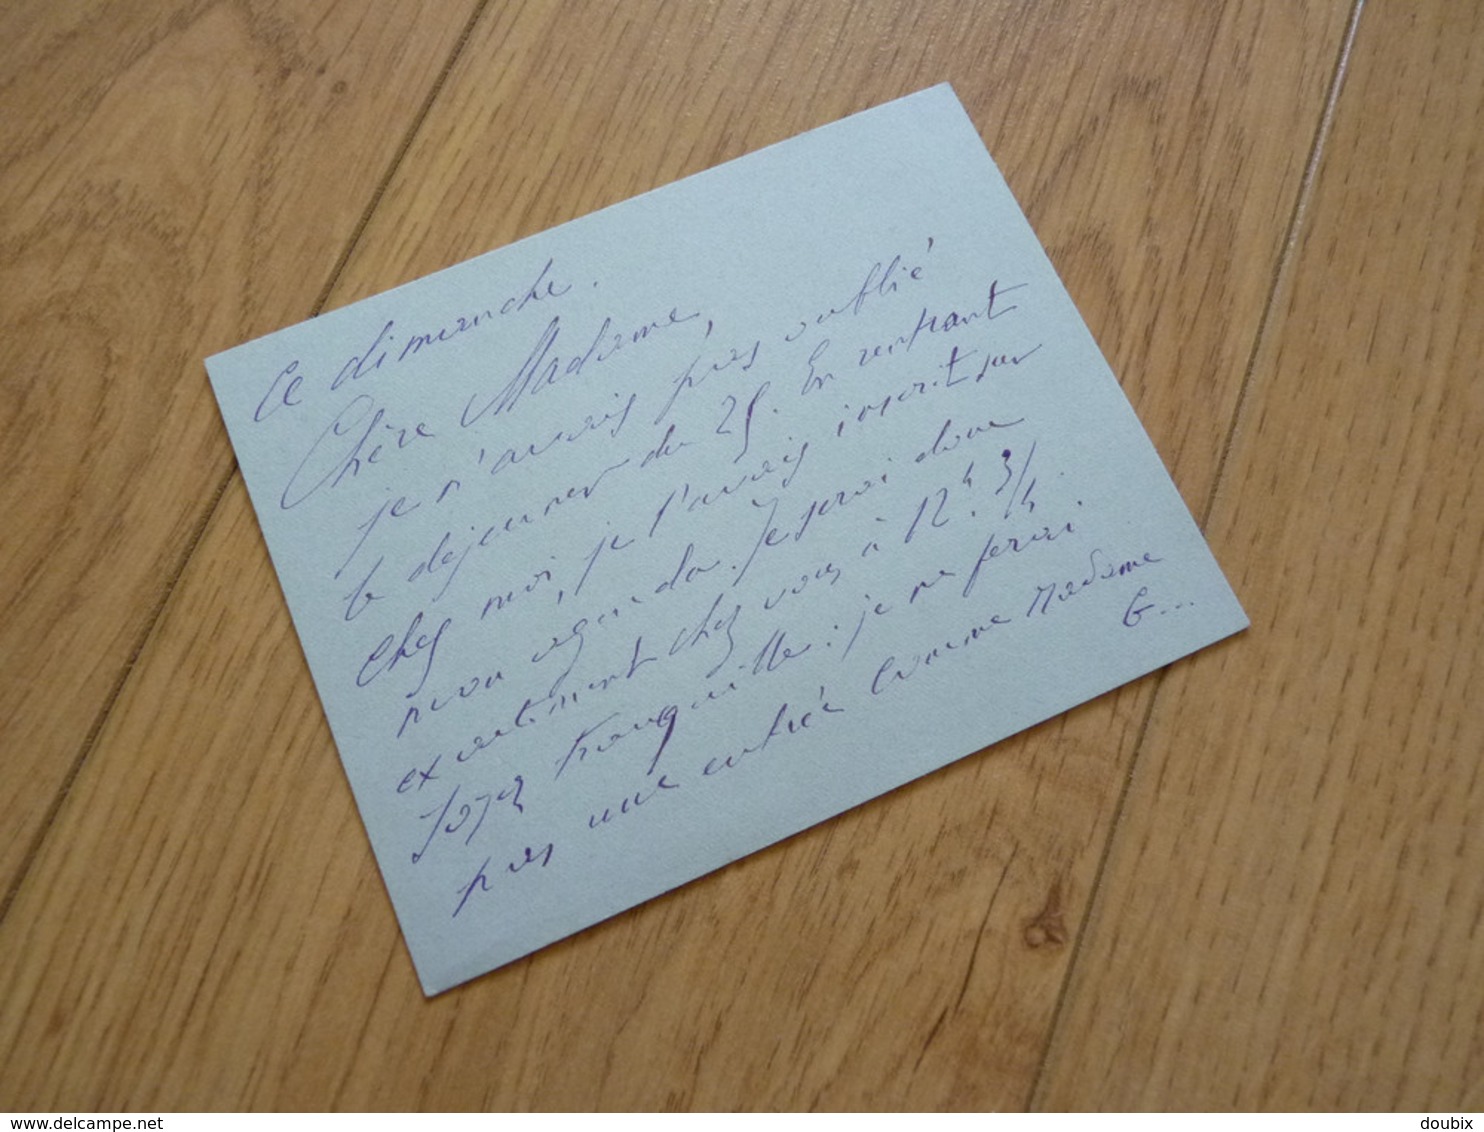 Ce dimanche.
Chère Madame,
je n'avais pas oublié
le déjeuner du 25. En rentrant
chez moi, je l'avais inscrit sur
mon agenda. Je serai donc
exactement chez vous à 12h. 3/4.
Soyez tranquille : je ne ferai
pas une entrée comme Madame
G...
www.delcampe.net
doubix